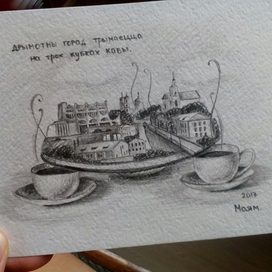 дрымотны горад трымаецца
на трох кубках кавы.
2017
Маям.